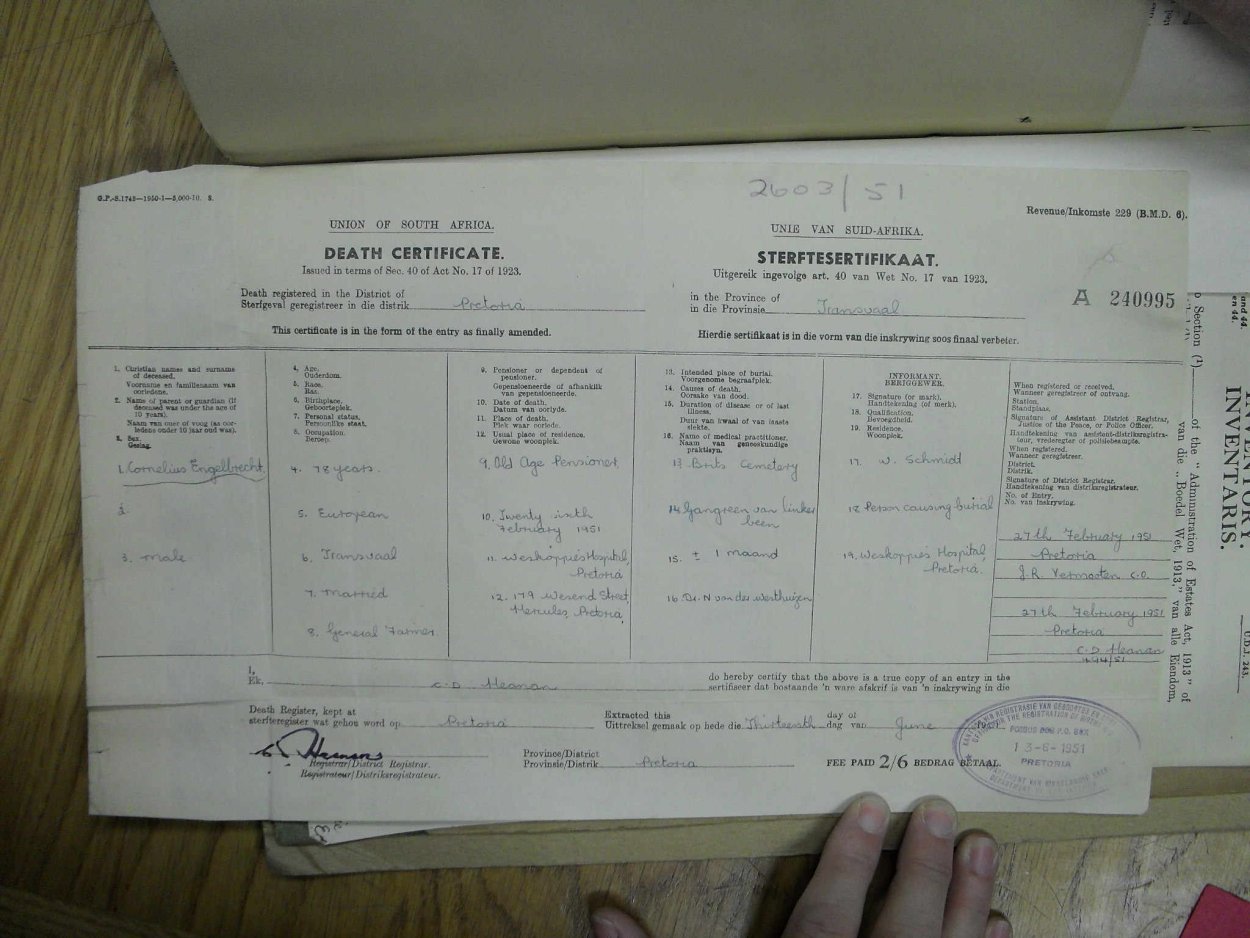 G.P.-S.1743—1950-1—5,000-10. S.
2603/51
Revenue/Inkomste 229 (B.M.D. 6).
UNION OF SOUTH AFRICA.
DEATH CERTIFICATE.
Issued in terms of Sec. 40 of Act No. 17 of 1923.
UNIE VAN SUID-AFRIKA.
STERFTESERTIFIKAAT.
Uitgereik ingevolge art. 40 van Wet No. 17 van 1923.
Death registered in the District of
Sterfgeval geregistreer in die distrik Pretoria
in the Province of
in die Provinsie Transvaal
A 240995
This certificate is in the form of the entry as finally amended.
Hierdie sertifikaat is in die vorm van die inskrywing soos finaal verbeter.
1. Christian names and surname
of deceased.
Voorname en familienaam van
oorledene.
2. Name of parent or guardian (if
deceased was under the age of
10 years).
Naam van ouer of voog (as oor-
ledene onder 10 jaar oud was).
3. Sex.
Geslag.
1. Cornelius Engelbrecht
2.
3. Male
4. Age.
Ouderdom.
5. Race.
Ras.
6. Birthplace.
Geboorteplek.
7. Personal status.
Persoonlike staat.
8. Occupation.
Beroep.
4. 78 years.
5. European
6. Transvaal
7. Married
8. General Farmer
9. Pensioner or dependent of
pensioner.
Gepensioeneerde of afhanklik
van gepensioeneerde.
10. Date of death.
Datum van oorlyde.
11. Place of death.
Plek waar oorlede.
12. Usual place of residence.
Gewone woonplek.
9. Old Age Pensioner.
10. Twenty sixth
February 1951
11. Weskoppies Hospital,
Pretoria
12. 179 Weend Street,
Hercules, Pretoria,
13. Intended place of burial.
Voorgenome begraafplek.
14. Causes of death.
Oorsake van dood.
15. Duration of disease or of last
illness.
Duur van kwaal of van laaste
siekte.
16. Name of medical practitioner.
Naam van geneeskundige
praktisyn.
13. Brits Cemetery
14. Gangreen van linker
been
15. ± 1 maand
16. Dr. N van der Westhuizen
INFORMANT.
BERIGGEWER.
17. Signature (or mark).
Handtekening (of merk).
18. Qualification.
Bevoegdheid.
19. Residence.
Woonplek.
17. W. Schmidt
18. Person causing burial
19. Weskoppies Hospital,
Pretoria.
When registered or received.
Wanneer geregistreer of ontvang.
Station.
Standplaas.
Signature of Assistant District Registrar,
Justice of the Peace, or Police Officer.
Handtekening van assistent-distriksregistra-
teur, vrederegter of polisiebeampte.
When registered.
Wanneer geregistreer.
District.
Distrik.
Signature of District Registrar.
Handtekening van distriksregistrateur.
No. of Entry.
No. van Inskrywing.
27th February 1951
Pretoria
J.R. Vermooten C.O.
27th February 1951
Pretoria
C.D. Heanan
494/51
I,
Ek, C.D. Heanan
do hereby certify that the above is a true copy of an entry in the
sertifiseer dat bostaande 'n ware afskrif is van 'n inskrywing in die
Death Register, kept at
sterfteregister wat gehou word op Pretoria
Extracted this
Uittreksel gemaak op hede die Thirteenth
day of
dag van June
Registrar/District Registrar.
Registrateur/Distriksregistrateur.
Province/District
Provinsie/Distrik Pretoria
FEE PAID 2/6 BEDRAG BETAAL.
POSBUS P.O. BOX
13-6-1951
PRETORIA
DEPARTEMENT VAN BINNELANDSE SAKE
Section (1), of the "Administration of Estates Act, 1913" of
van die „Boedel Wet, 1913," van alle Eiendom,
and 44.
en 44.
INVENTORY.
INVENTARIS.
U.D.J. 243.